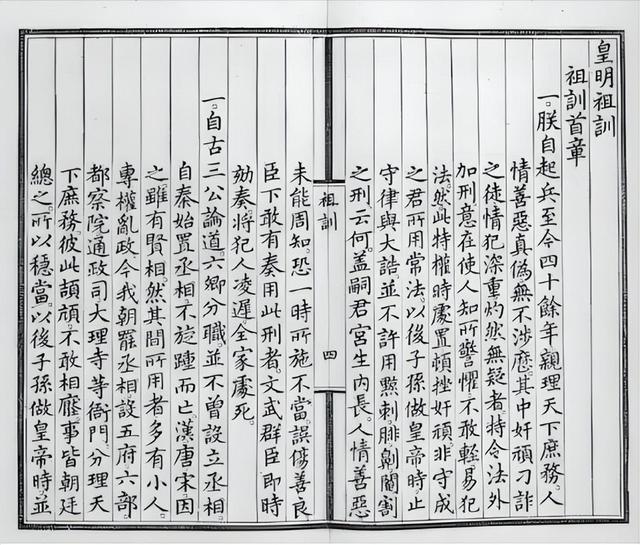 皇明祖訓
祖訓首章
一。朕自起兵至今四十餘年。親理天下庶務。人
情善惡真偽無不涉歷。其中奸頑刁詐
之徒情犯深重灼然無疑者。特令法外
加刑意在使人知所警懼。不敢輕易犯
法。然此特權時處置頓挫奸頑。非守成
之君所用常法。以後子孫做皇帝時。止
守律與大誥。並不許用黥刺。腓劓閹割
之刑。云何。蓋嗣君宮生內長。人情善惡
祖訓
四
未能周知。恐一時所施不當。誤傷善良。
臣下敢有奏用此刑者。文武群臣即時
劾奏將犯人凌遲全家處死。
一。自古三公論道。六卿分職。並不曾設立丞相。
自秦始置丞相。不旋踵而亡。漢唐宋因
之雖有賢相。然其間所用者多有小人。
專權亂政。今我朝罷丞相。設五府。六部。
都察院通政司大理寺等衙門。分理天
下庶務。彼此頡頏。不敢相壓事皆朝廷
總之所以穩當。以後子孫做皇帝時。並